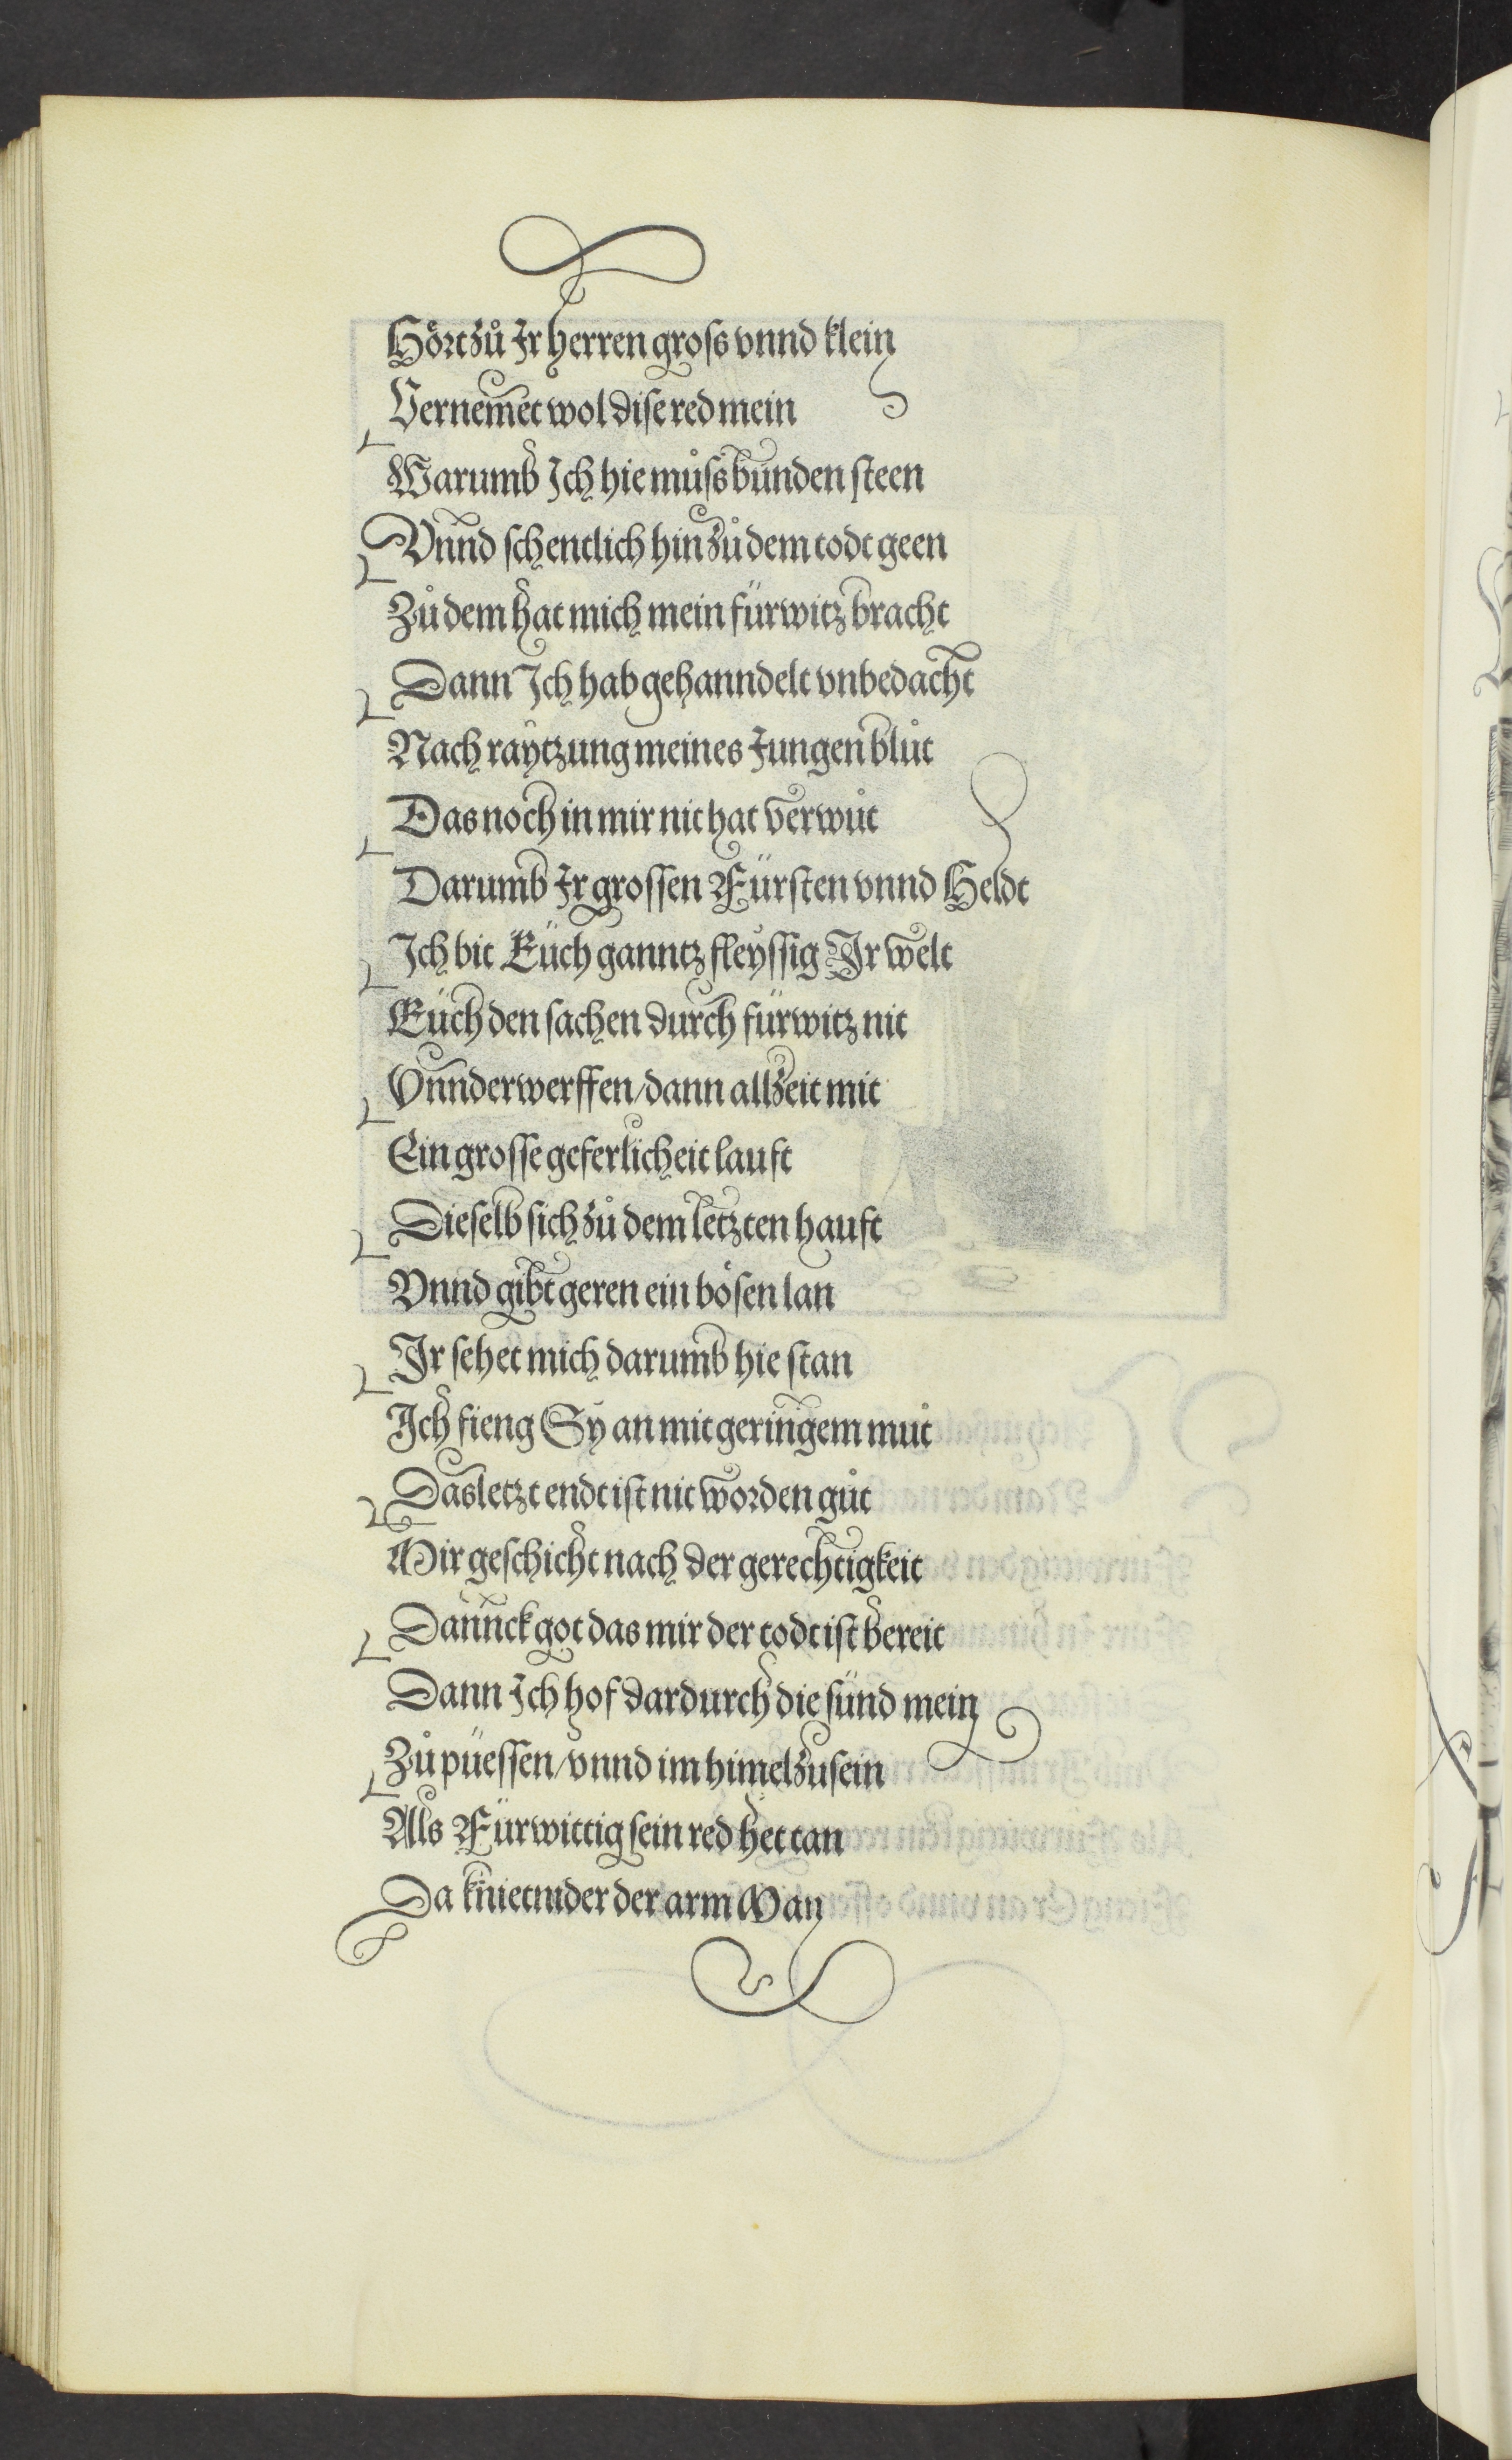 Hoͤrt zuͦ Ir herren gross vnnd klein
Vernemet wol dise red mein
Warumb Ich hie muͦss bunden steen
Vnnd schentlich hin zuͦ dem todt geen
Zuͦ dem hat mich mein fürwitz bracht
Dann Ich hab gehanndelt vnbedacht
Nach raytzung meines Jungen bluͦt
Das noch in mir nit hat verwuͦt
Darumb Ir grossen Fürsten vnnd Heldt
Ich bit Euch ganntz fleyssig Ir welt
Euch den sachen durch fürwitz nit
Vnnderwerffen/dann allzeit mit
Ein grosse geferlicheit lauft
Dieselb sich zuͦ dem letzten hauft
Vnnd gibt geren ein boͤsen lan
Ir sehet mich darumb hie stan
Ich fieng Sy an mit geringem muͦt
Das letzt endt ist nit worden guͦt
Mir geschicht nach der gerechtigkeit
Dannck got das mir der todt ist bereit
Dann Ich hof dardurch die sünd mein
Zuͦ püessen/vnnd im himel zu sein
Als Fürwittig sein red het tan
Da kniet nider der arm Man